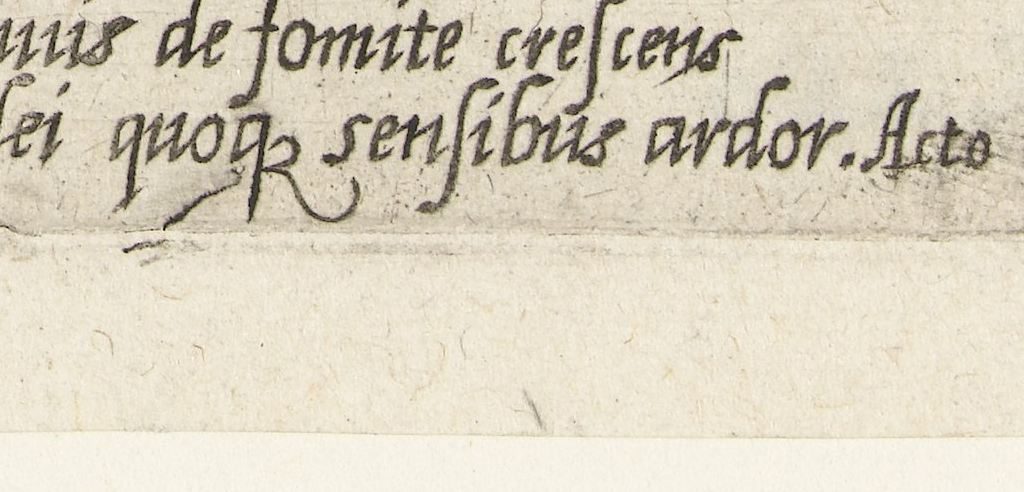 de fomite creſcens
quoqꝫ senſibus ardor. Acto